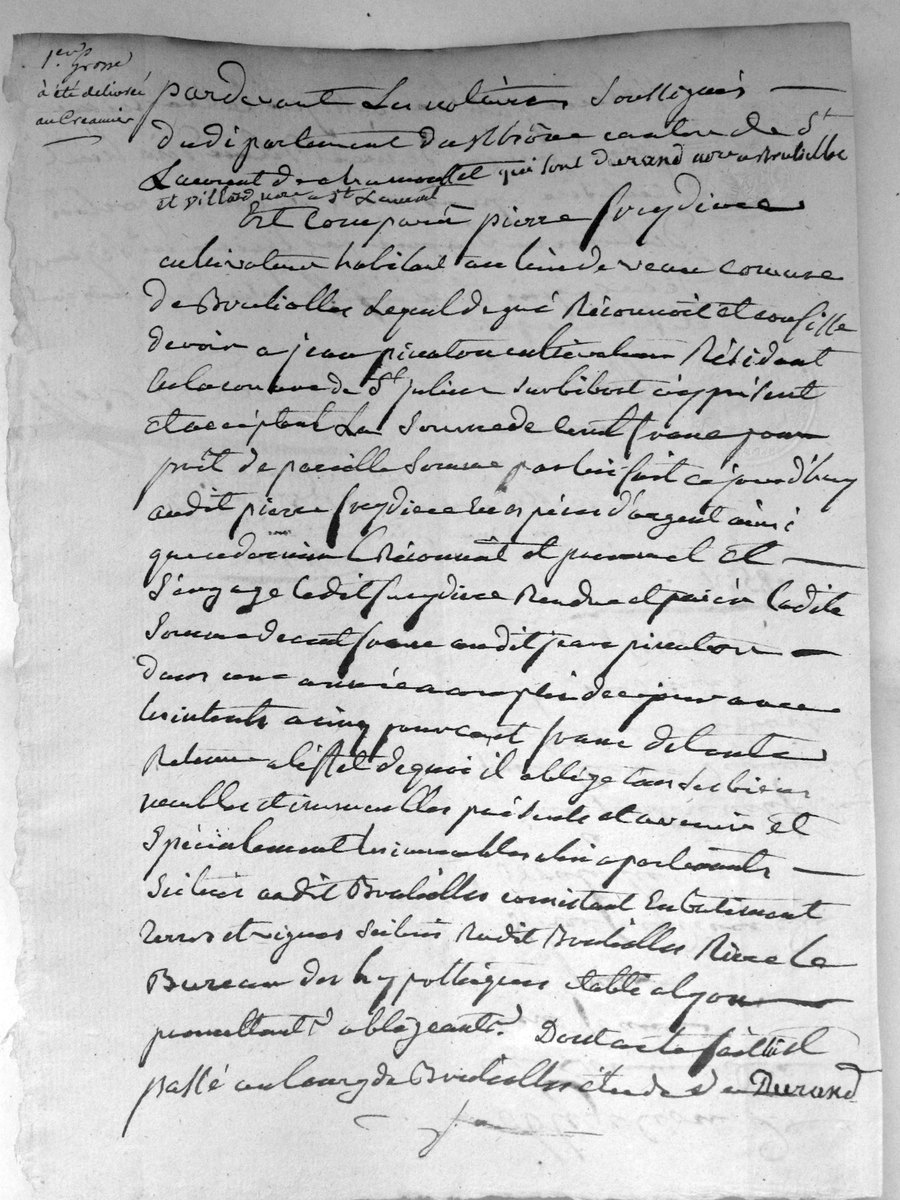 1ere
grosse
à été delivrée
au Creancier
pardevant Les notaires Soussignés —
du département du Rhône canton de St
Laurent de chamousset qui sont Durand nore a Brulliolles
et Villard nore a St Laurent
Est Comparu pierre freydiere
cultivateur habitant au lieu de comune
de Brulliolles Lequel de gré Réconnoit et confesse
devoir a jean pinaton cultivateur Résident
en la comune de St julien sur bibost cy présent
et acceptant La Somme de Cent franc pour
prêt de pareille Somme par lui fait ce jourd'huy
audit pierre freydiere En espèces d'argent ainsi
que ce dernier le Réconnoit et promet Et —
S'engage Ledit freydiere Rendre et païer ladite
Somme de cent franc audit jean pinaton —
dans une année a compter de ce jour avec
les interets a cinq pour cent franc de toute
Retenue a l'effet de quoi il oblige tous ses biens
meubles et immeubles présents et avenir et
Spécialement les immeubles a lui apartenants —
Scitués audit Brulliolles consistant En batiment
terres et vignes Scitués audit Brulliolles Riere Le
Bureau des hypotteques etabli a lyon —
promettants obligeants. Dont acte fait et
passé au bourg de Brulliolles étude de Durand